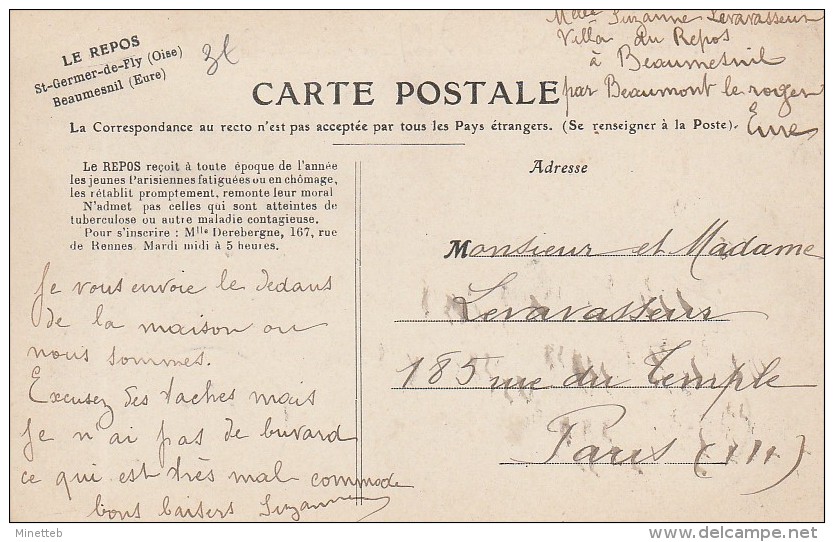 LE REPOS
St-Germer-de-Fly (Oise)
Beaumesnil (Eure)
Melle Suzanne Levavasseur
Villa du Repos
à Beaumesnil
par Beaumont le roger
Eure
CARTE POSTALE
La Correspondance au recto n'est pas acceptée par tous les Pays étrangers. (Se renseigner à la Poste).
Le REPOS reçoit à toute époque de l'année
les jeunes Parisiennes fatiguées ou en chômage,
les rétablit promptement, remonte leur moral
N'admet pas celles qui sont atteintes de
tuberculose ou autre maladie contagieuse.
Pour s'inscrire : Mlle Derebergne, 167, rue
de Rennes. Mardi midi à 5 heures.
Je vous envoie le dedans
de la maison ou
nous sommes.
Excusez des taches mais
Je n'ai pas de buvard
ce qui est très mal commode
bons baisers Suzanne
Adresse
Monsieur et Madame
Levavasseur
185 rue du Temple
Paris (III)
Minetteb
delcampe.net